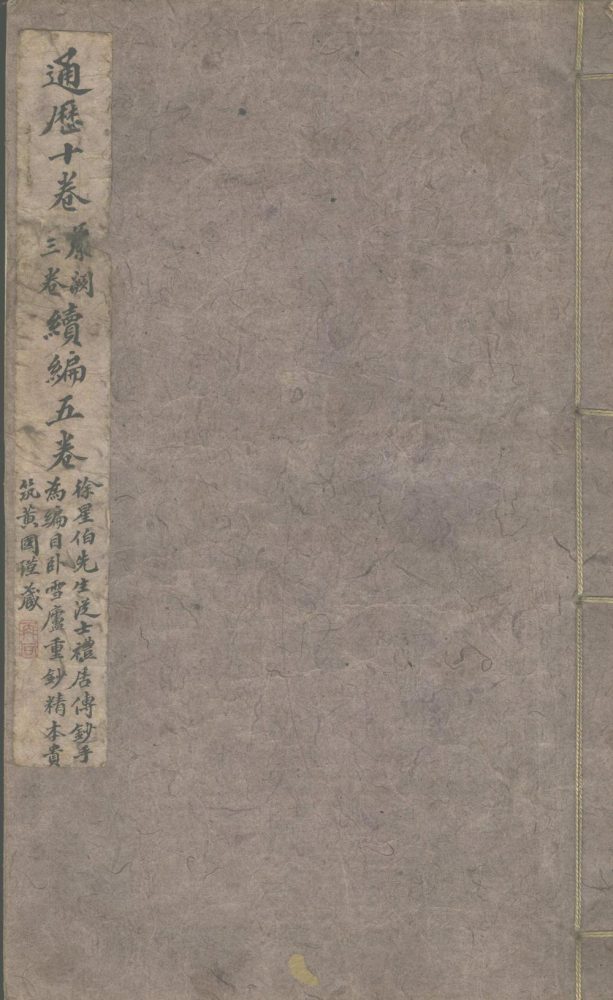 通歷十卷
原闕
三卷
續編五卷
徐星伯先生從士禮居傳鈔手
為編目卧雪廬重鈔精本貴
筑黃國瑾藏